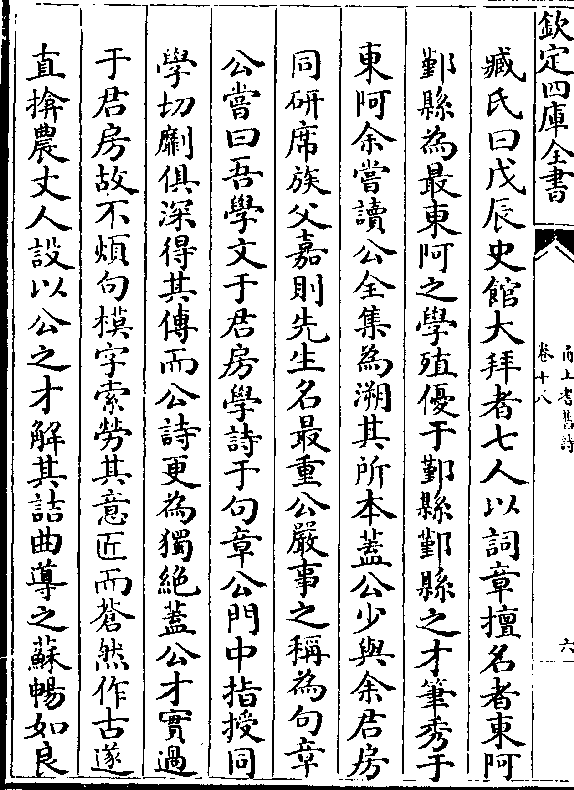 欽定四庫全書
甬上耆舊詩
卷十八
六
臧氏曰戊辰史館大拜者七人以詞章擅名者東阿
鄞縣為最東阿之學殖優于鄞縣鄞縣之才筆秀于
東阿余嘗讀公全集為溯其所本蓋公少與余君房
同研席族父嘉則先生名最重公嚴事之稱為句章
公嘗曰吾學文于君房學詩于句章公門中指授同
學切劘俱深得其傳而公詩更為獨絶蓋公才實過
于君房故不煩句模字索勞其意匠而蒼然作古遂
直掩農丈人設以公之才解其詰曲導之蘇暢如良